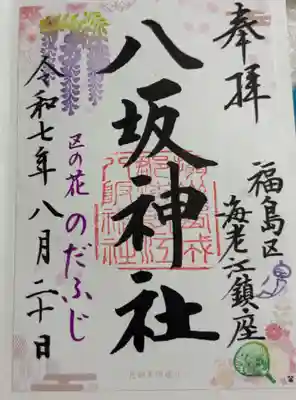 奉拝
福島区
海老江鎮座
八坂神社
区の花 のだふじ
令和七年八月二十日